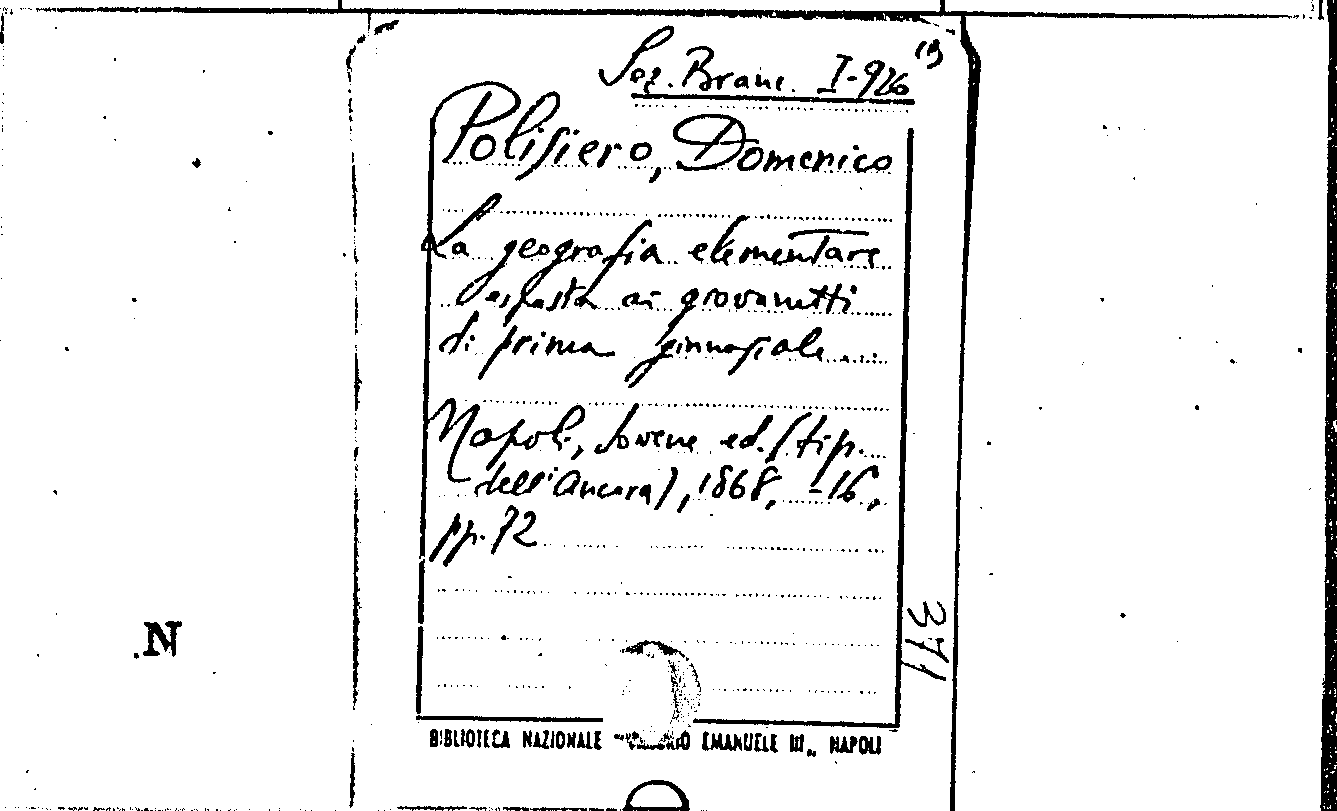 Sez. Branc. I-926 (9
Polisiero, Domenico
La geografia elementare
esposta ai giovanetti
di prima ginnasiale....
Napoli, Jovene ed. (tip.
dell'Ancora), 1868, -16,
pp. 72
371
N
BIBLIOTECA NAZIONALE "VITTORIO EMANUELE III„ NAPOLI